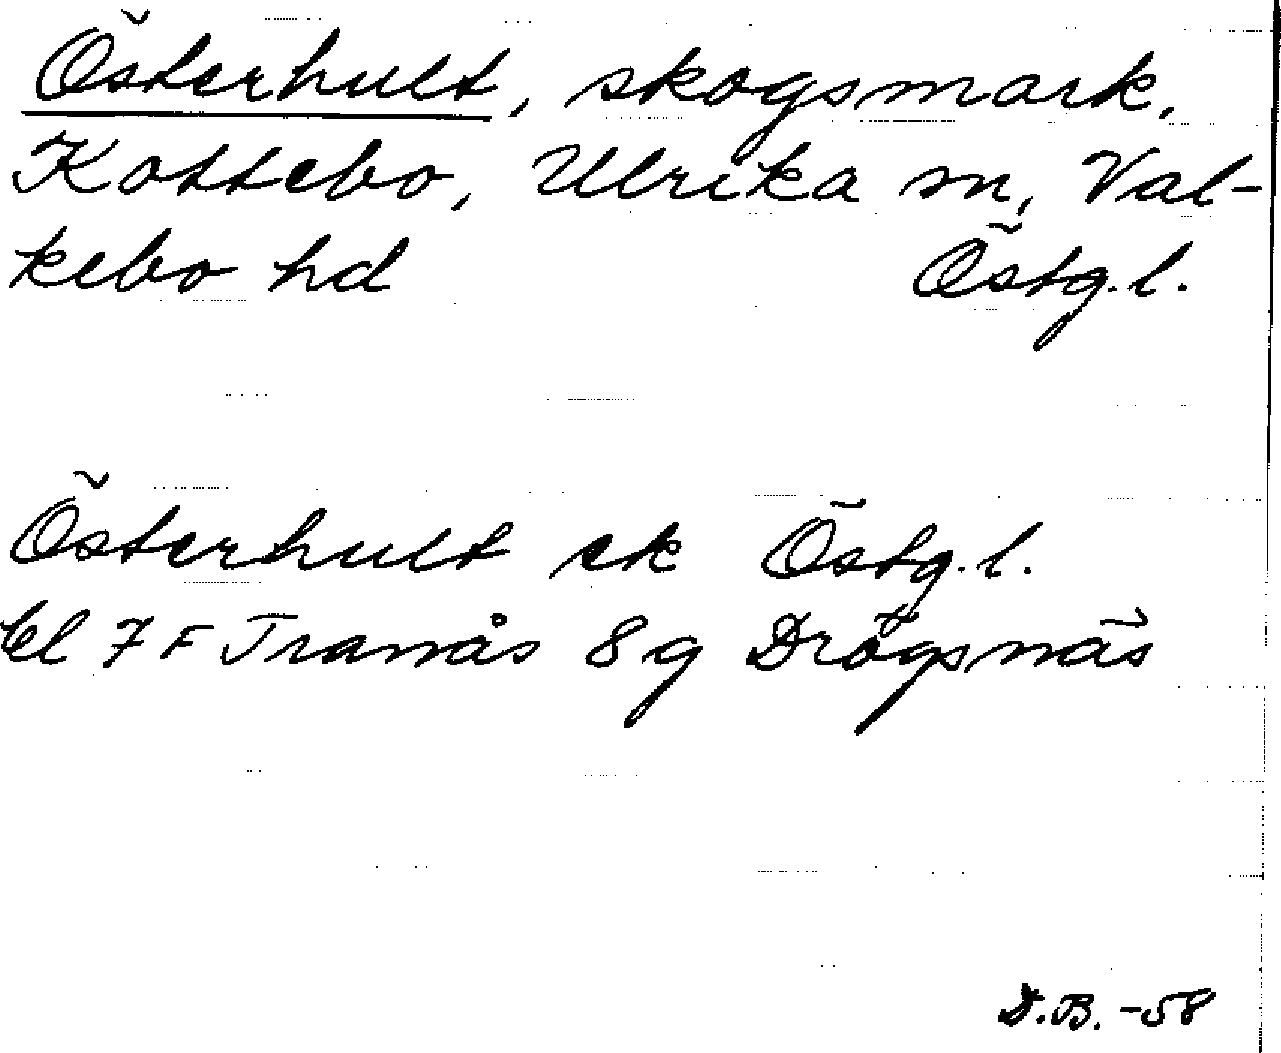 Österhult, skogsmark,
Kottebo, Ulrika sn, Val-
kebo hd Östg.l.
Österhult ek Östg.l.
bl 7F Tranås 8g Drögsnäs
D.B. -58